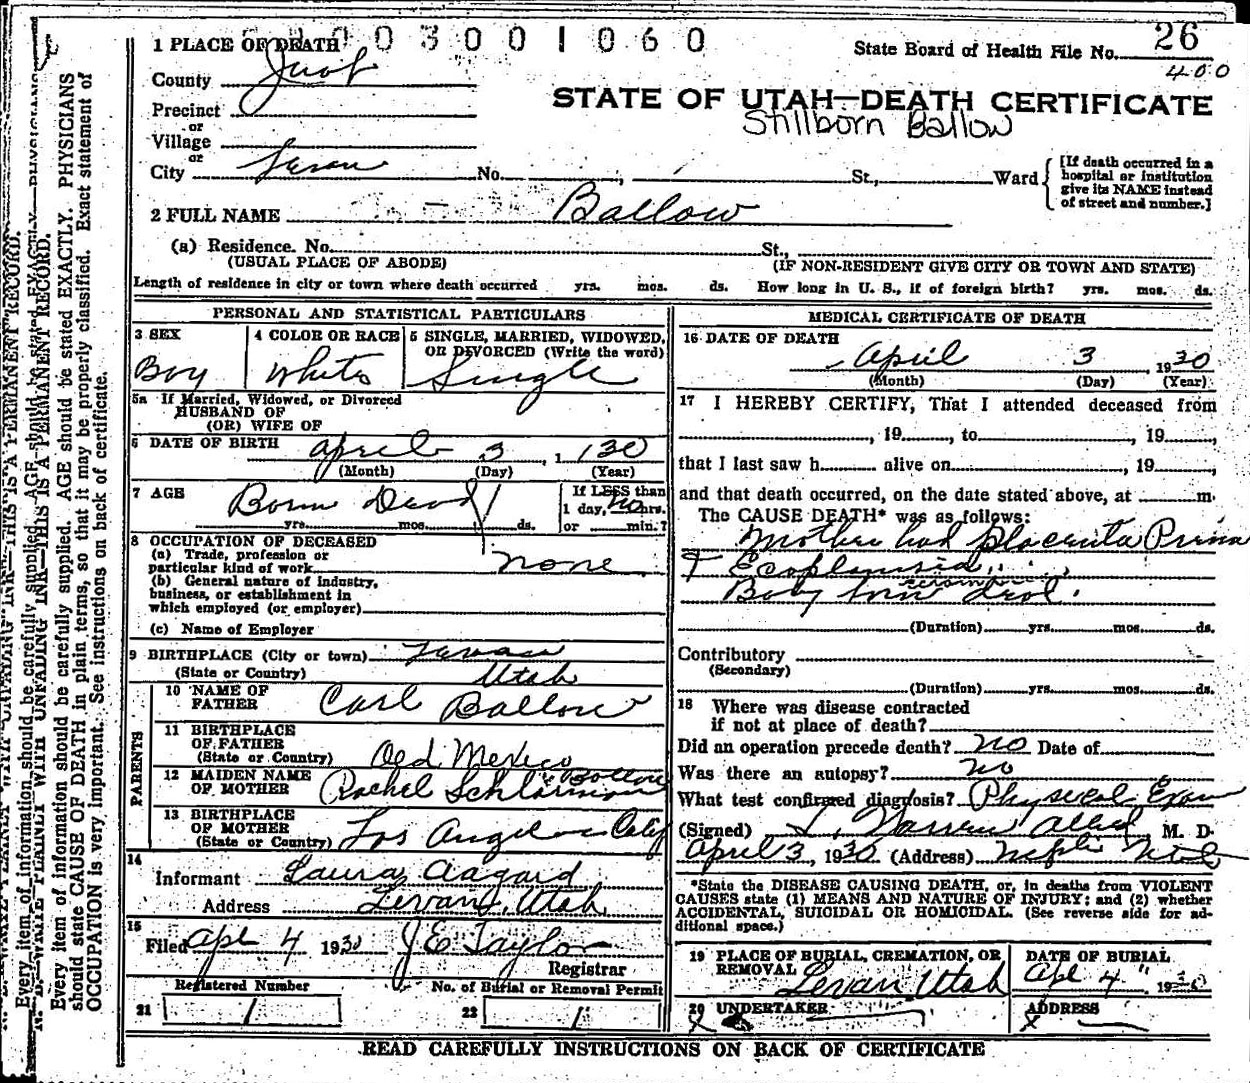 1 PLACE OF DEATH 003001060
State Board of Health File No. 26
400
County Juab
STATE OF UTAH—DEATH CERTIFICATE
Precinct
Stillborn Ballow
or
Village
or
City Levan No. , St., Ward
[If death occurred in a hospital or institution give its NAME instead of street and number.]
2 FULL NAME Ballow
(a) Residence. No. St.,
(USUAL PLACE OF ABODE) (IF NON-RESIDENT GIVE CITY OR TOWN AND STATE)
Length of residence in city or town where death occurred yrs. mos. ds. How long in U. S., if of foreign birth? yrs. mos. ds.
PERSONAL AND STATISTICAL PARTICULARS
3 SEX
Boy
4 COLOR OR RACE
White
5 SINGLE, MARRIED, WIDOWED,
OR DIVORCED (Write the word)
Single
5a If Married, Widowed, or Divorced
HUSBAND OF
(OR) WIFE OF
6 DATE OF BIRTH April 3, 1930
(Month) (Day) (Year)
7 AGE Born Dead
yrs. mos. ds.
If LESS than
1 day, no hrs.
or min.?
8 OCCUPATION OF DECEASED
(a) Trade, profession or
particular kind of work none
(b) General nature of industry,
business, or establishment in
which employed (or employer)
(c) Name of Employer
9 BIRTHPLACE (City or town) Levan
(State or Country) Utah
PARENTS
10 NAME OF
FATHER Carl Ballow
11 BIRTHPLACE
OF FATHER
(State or Country) Old Mexico
12 MAIDEN NAME
OF MOTHER Rachel Ballow
13 BIRTHPLACE
OF MOTHER
(State or Country) Los Angeles Calif
14
Informant Laura Aagard
Address Levan, Utah
15
Filed Apr 4 1930 J E Taylor
Registrar
Registered Number No. of Burial or Removal Permit
21 1 22 1
MEDICAL CERTIFICATE OF DEATH
16 DATE OF DEATH
April 3 1930
(Month) (Day) (Year)
17 I HEREBY CERTIFY, That I attended deceased from
, 19 , to , 19 ,
that I last saw h alive on , 19 ,
and that death occurred, on the date stated above, at m.
The CAUSE DEATH* was as follows:
Mother had placenta
Baby born dead.
(Duration) yrs. mos. ds.
Contributory
(Secondary)
(Duration) yrs. mos. ds.
18 Where was disease contracted
if not at place of death?
Did an operation precede death? no Date of
Was there an autopsy? no
What test confirmed diagnosis? Physical Exam
(Signed) Warren Allred, M. D.
April 3, 1930 (Address) Nephi Utah
*State the DISEASE CAUSING DEATH, or, in deaths from VIOLENT
CAUSES state (1) MEANS AND NATURE OF INJURY; and (2) whether
ACCIDENTAL, SUICIDAL OR HOMICIDAL. (See reverse side for ad-
ditional space.)
19 PLACE OF BURIAL, CREMATION, OR
REMOVAL Levan Utah
DATE OF BURIAL
Apr 4 1930
20 UNDERTAKER
ADDRESS
READ CAREFULLY INSTRUCTIONS ON BACK OF CERTIFICATE
Every item of information should be carefully supplied. AGE should be stated EXACTLY. PHYSICIANS
should state CAUSE OF DEATH in plain terms, so that it may be properly classified. Exact statement of
OCCUPATION is very important. See instructions on back of certificate.